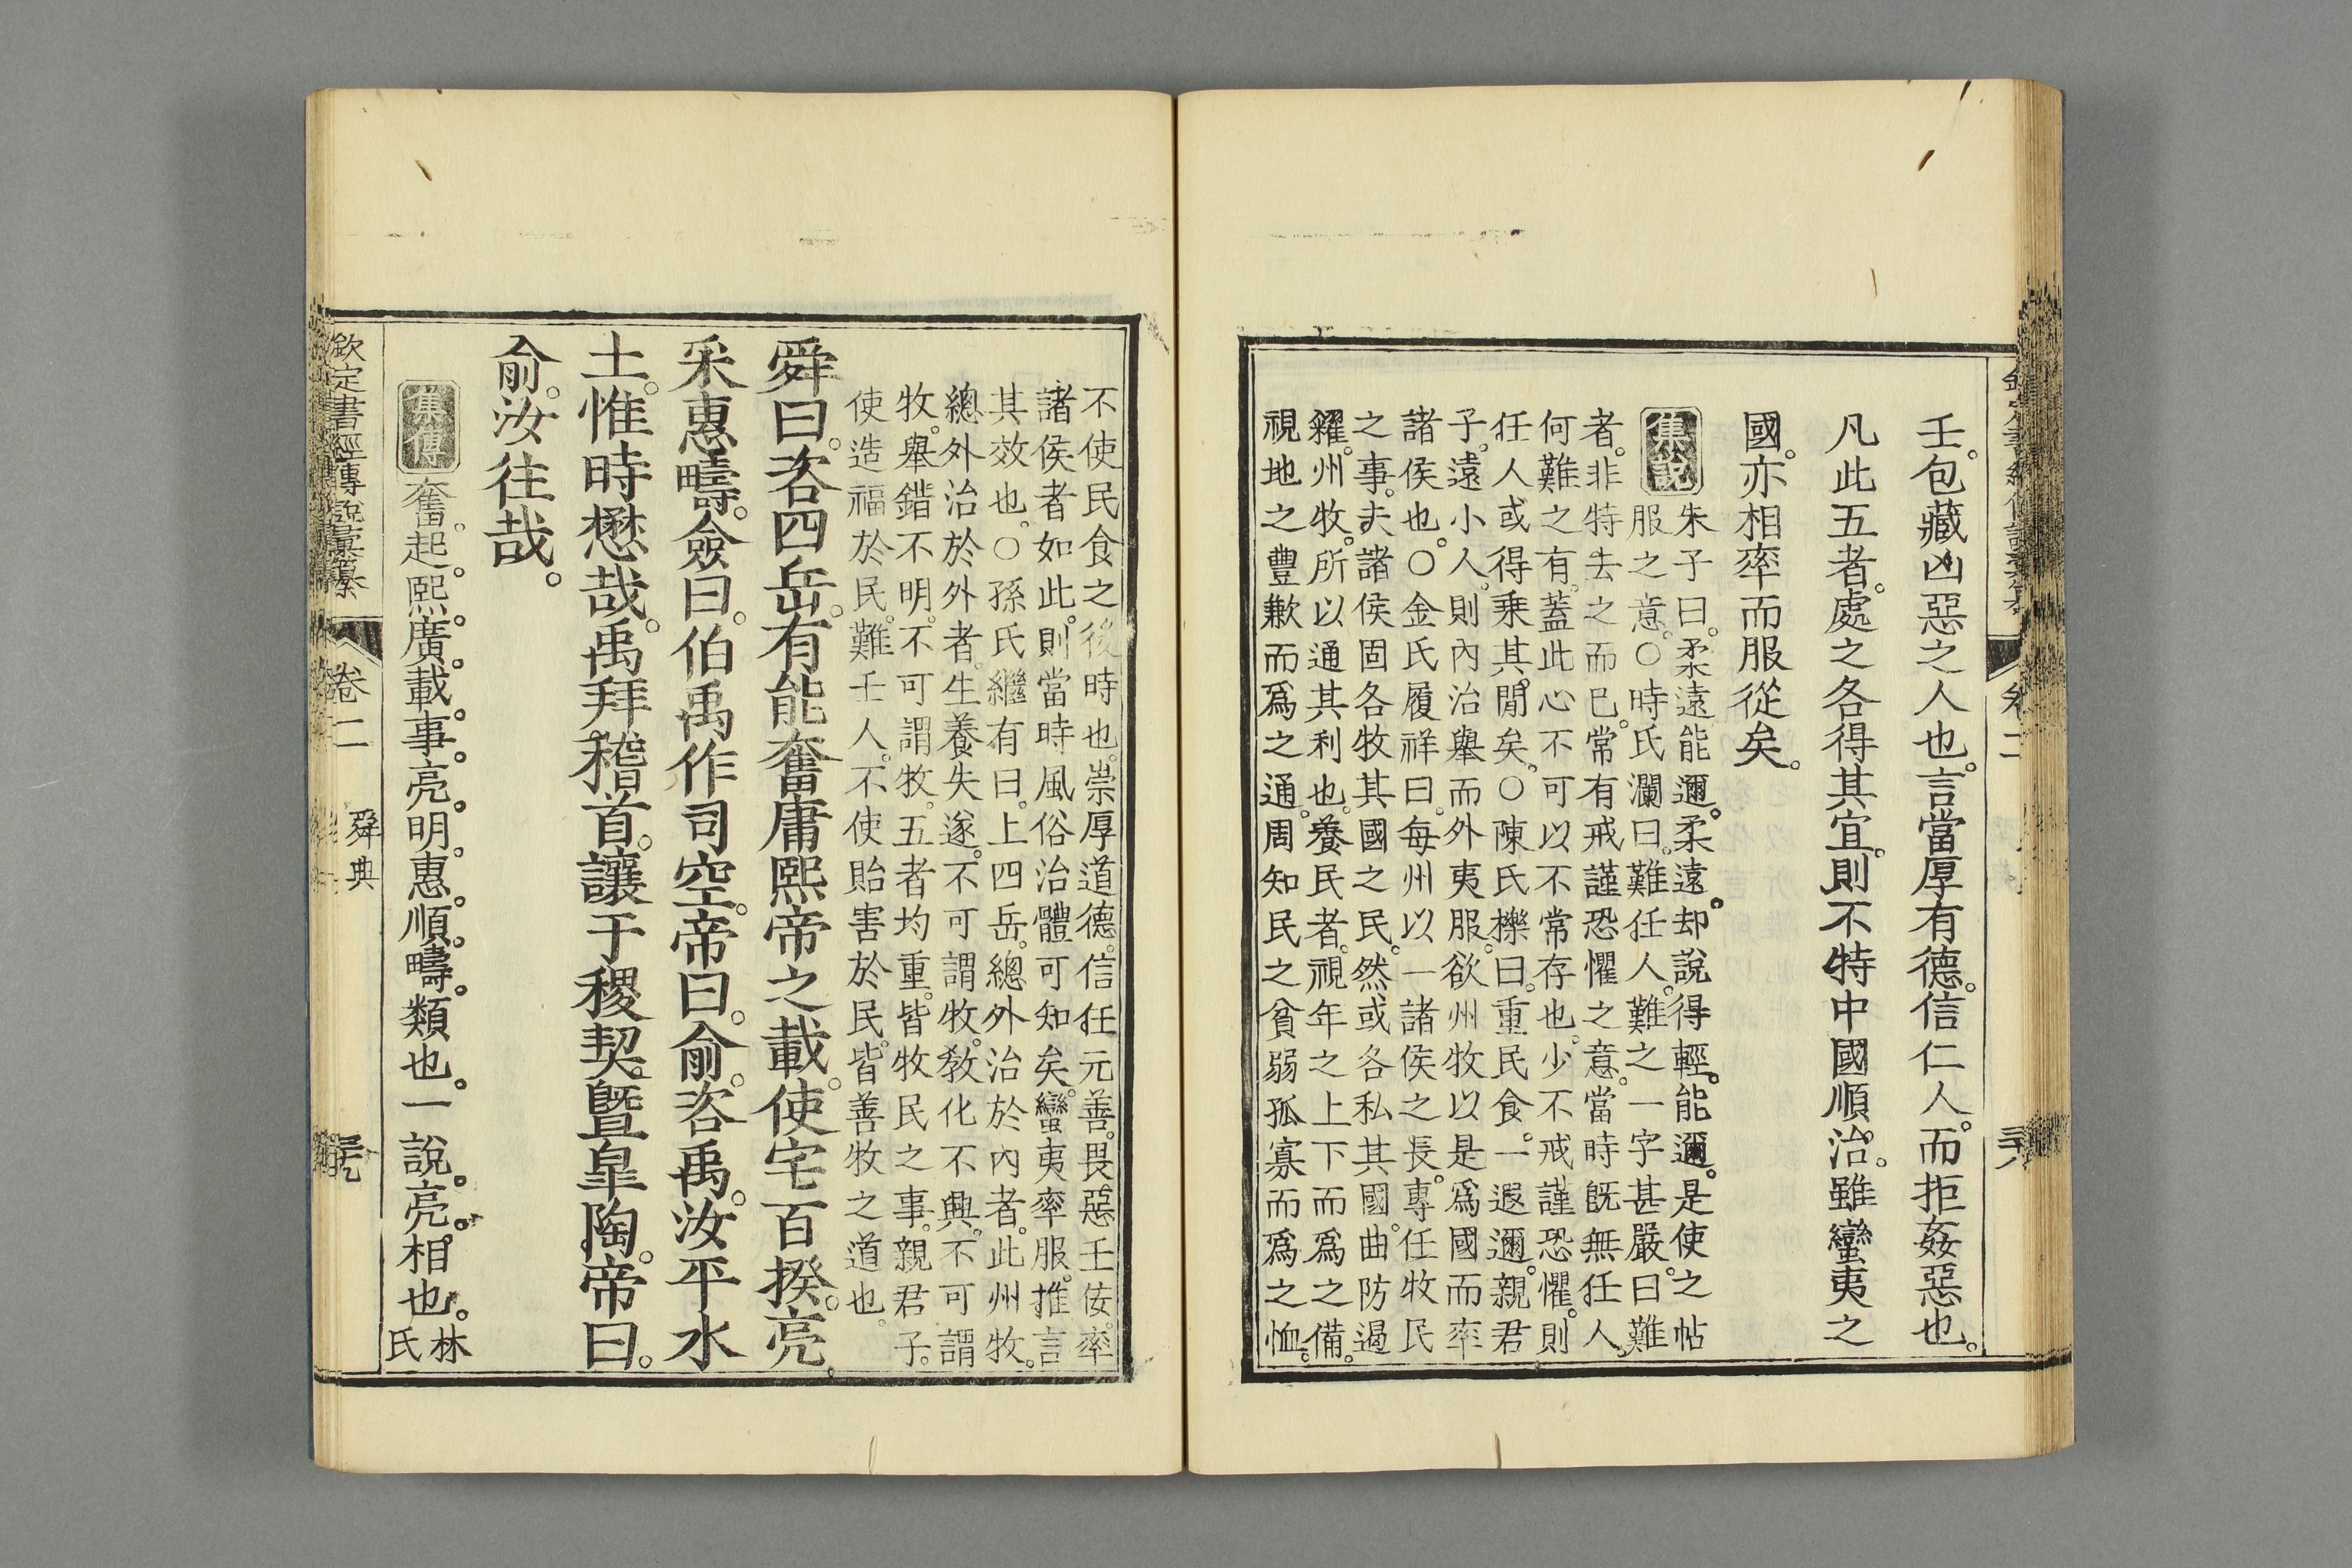 壬。包藏凶惡之人也。言當厚有德。信仁人。而拒姦惡也。
凡此五者。處之各得其宜。則不特中國順治。雖蠻夷之
國。亦相率而服從矣。
集說
朱子曰。柔遠能邇。柔遠。却說得輕。能邇。是使之帖
服之意。○時氏瀾曰。難任人。難之一字甚嚴。曰難
者。非特去之而已。常有戒謹恐懼之意。當時既無任人。
何難之有。蓋此心不可以不常存也。少不戒謹恐懼。則
任人或得乘其閒矣。○陳氏櫟曰。重民食。一遐邇。親君
子。遠小人。則內治舉而外夷服。欲州牧以是爲國而率
諸侯也。○金氏履祥曰。每州以一諸侯之長。專任牧民
之事。夫諸侯固各牧其國之民。然或各私其國。曲防遏
糴。州牧。所以通其利也。養民者。視年之上下而爲之備。
視地之豐歉而爲之通。周知民之貧弱孤寡而爲之恤。
卷二
不使民食之後時也。崇厚道德。信任元善。畏惡壬佞。率
諸侯者如此。則當時風俗治體可知矣。蠻夷率服。推言
其效也。○孫氏繼有曰。上四岳。總外治於內者。此州牧。
總外治於外者。生養失遂。不可謂牧。敎化不興。不可謂
牧。舉錯不明。不可謂牧。五者均重。皆牧民之事。親君子。
使造福於民。難壬人。不使貽害於民。皆善牧之道也。
舜曰。咨四岳。有能奮庸熙帝之載。使宅百揆。亮
采惠疇。僉曰。伯禹作司空。帝曰。俞。咨禹。汝平水
土。惟時懋哉。禹拜稽首。讓于稷契。曁皐陶。帝曰。
俞。汝往哉。
集傳
奮。起。熙。廣。載。事。亮。明。惠。順。疇。類也。一說。亮。相也。林
氏
欽定書經傳說彙纂
卷二
舜典